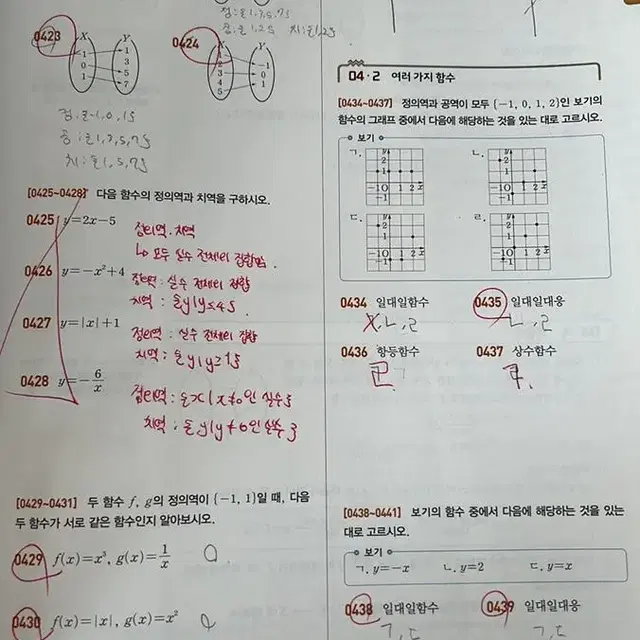 점: {1,3,5,7}
0423 X Y
-1 0 1
1 3 5 7
정: {-1, 0, 1}
공: {1, 3, 5, 7}
치: {1, 5, 7}
0424 X Y
1 2 3 4 5
-1 0 1
[0425~0428] 다음 함수의 정의역과 치역을 구하시오.
0425 y=2x-5
정의역. 치역
↳ 모두 실수 전체의 집합
0426 y=-x²+4
정의역: 실수 전체의 집합
치역: {y|y≤4}
0427 y=|x|+1
정의역: 실수 전체의 집합
치역: {y|y≥1}
0428 y=-6/x
정의역: {x|x≠0인 실수}
치역: {y|y≠0인 실수}
[0429~0431] 두 함수 f, g의 정의역이 {-1, 1}일 때, 다음
두 함수가 서로 같은 함수인지 알아보시오.
0429 f(x)=x³, g(x)=1/x
0430 f(x)=|x|, g(x)=x²
04·2 여러 가지 함수
[0434~0437] 정의역과 공역이 모두 {-1, 0, 1, 2}인 보기의
함수의 그래프 중에서 다음에 해당하는 것을 있는 대로 고르시오.
보기
ㄱ. ㄴ.
ㄷ. ㄹ.
0434 일대일함수 0435 일대일대응
ㄴ, ㄹ ㄴ, ㄹ
0436 항등함수 0437 상수함수
[0438~0441] 보기의 함수 중에서 다음에 해당하는 것을 있는
대로 고르시오.
보기
ㄱ. y=-x ㄴ. y=2 ㄷ. y=x
0438 일대일함수 0439 일대일대응
ㄱ, ㄷ ㄱ, ㄷ